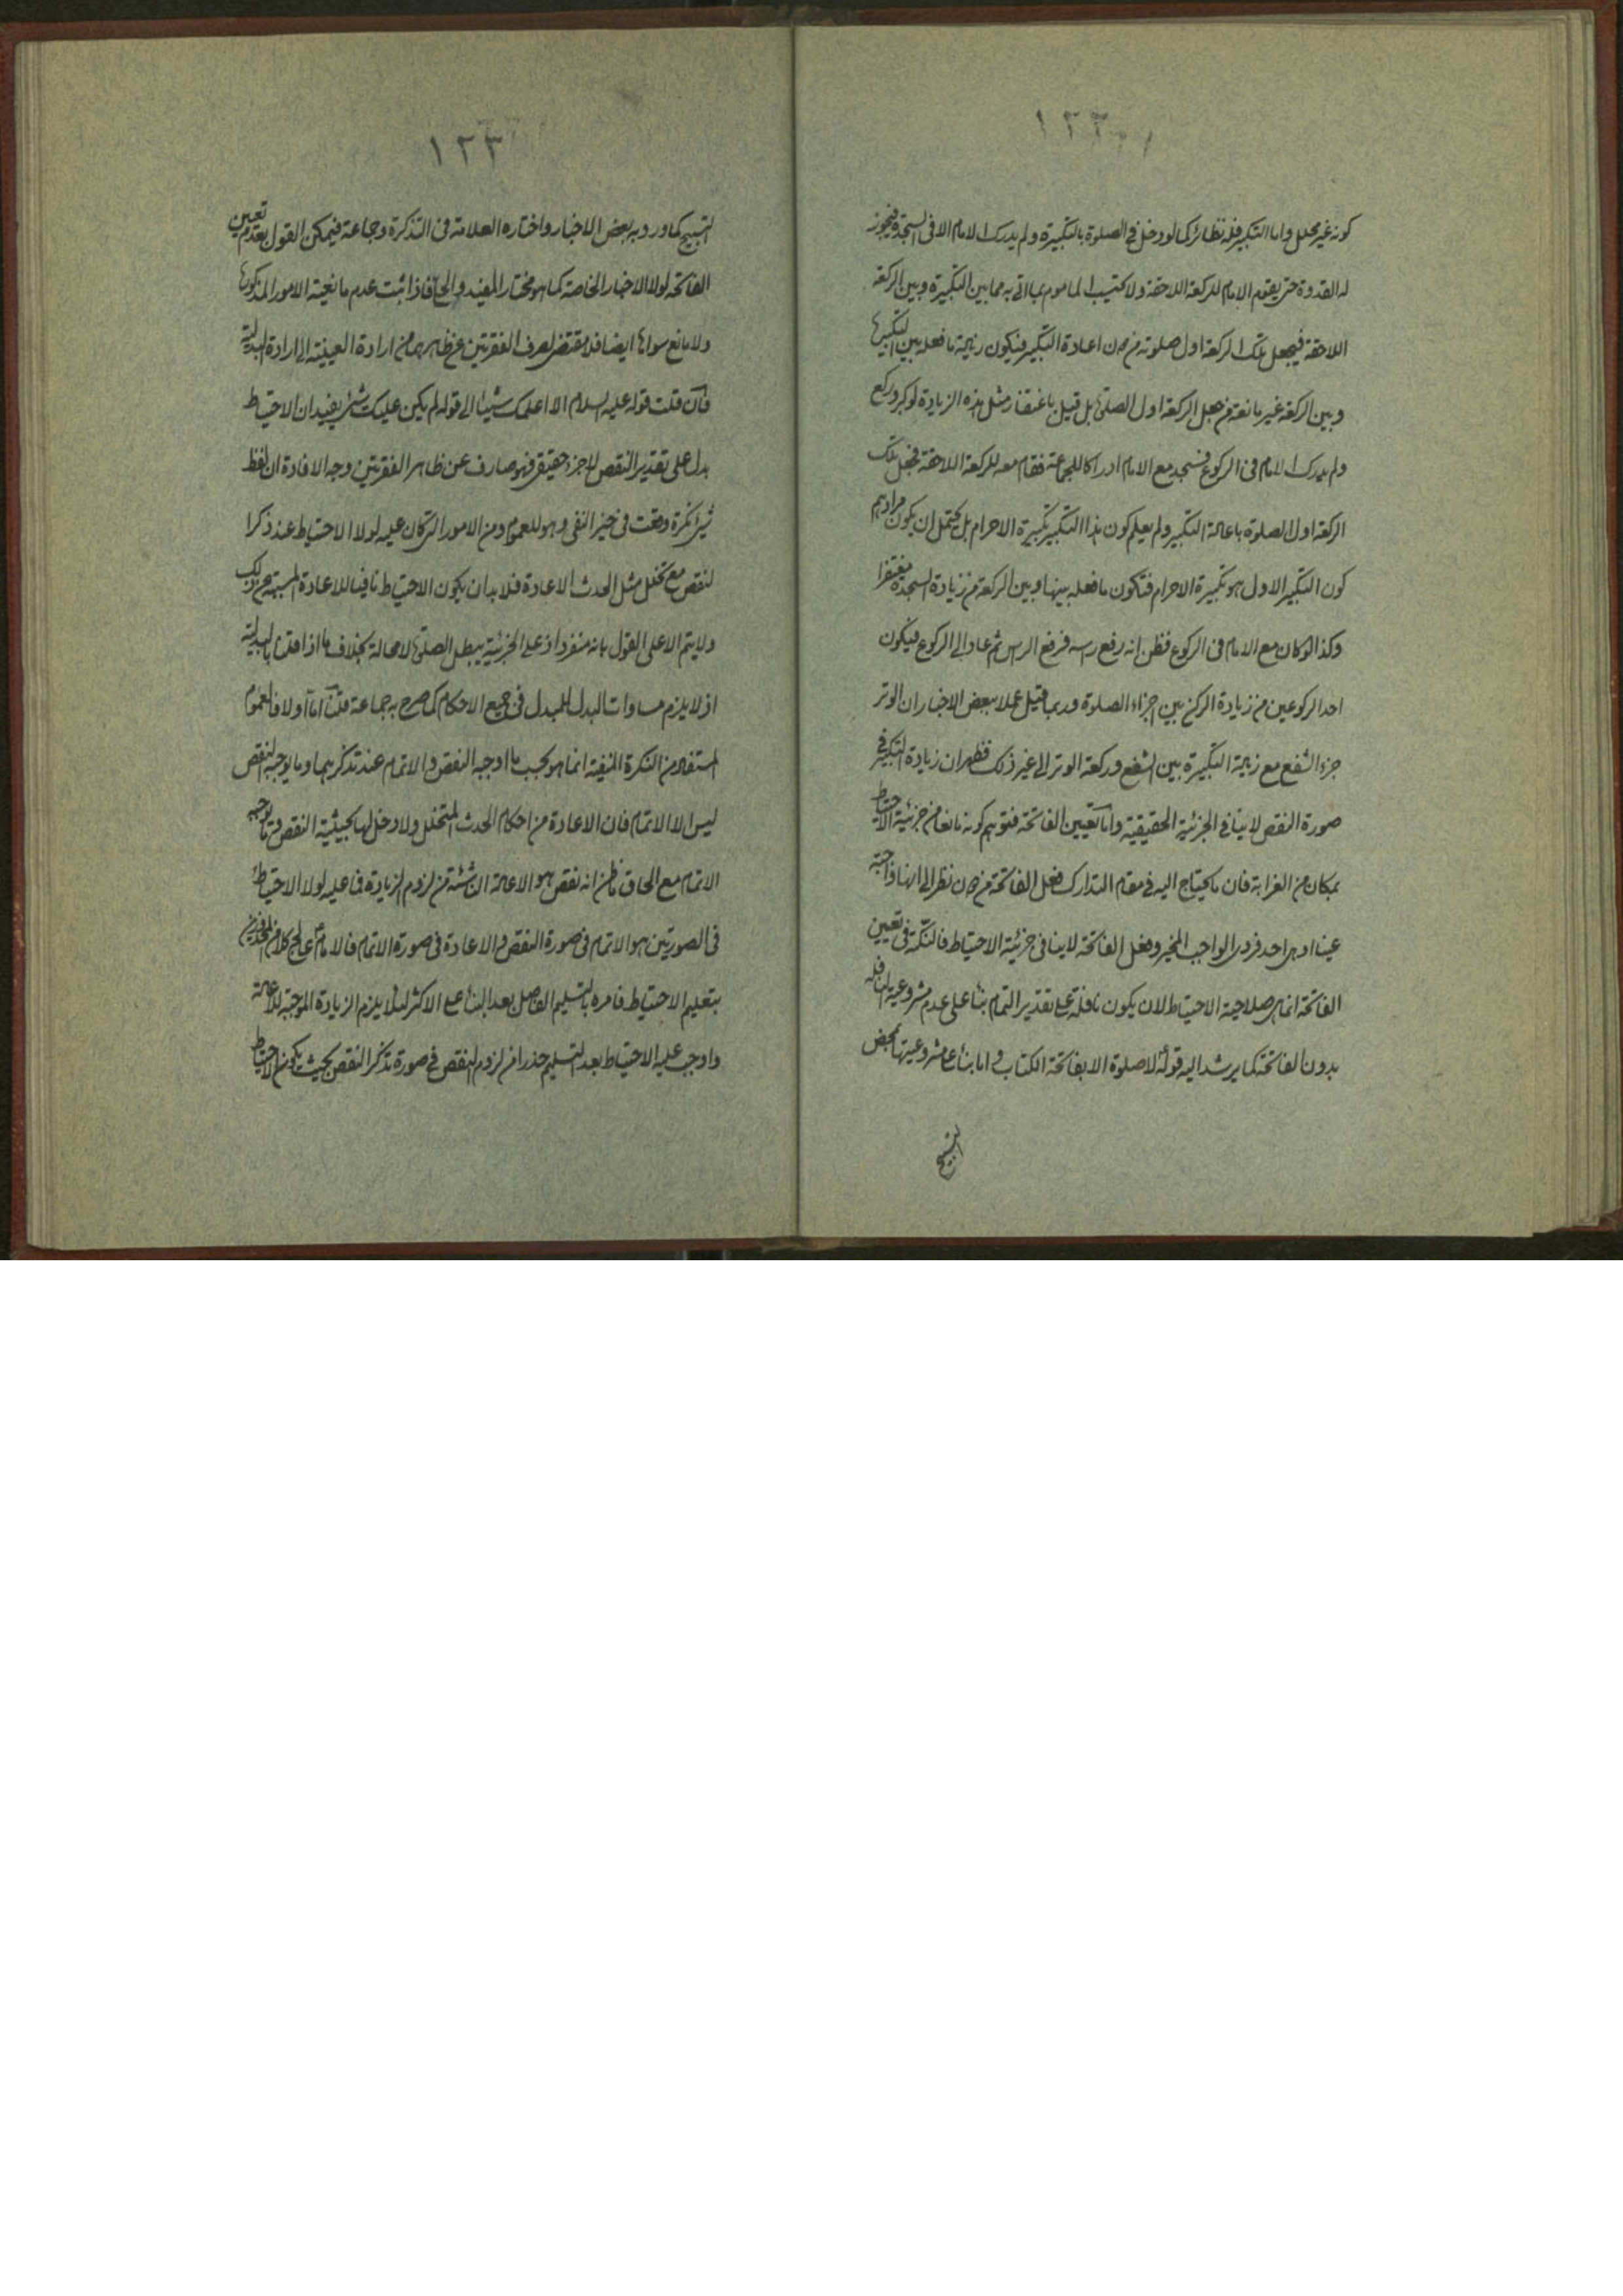 ١٢٢
كونه غير محلل واما التكبير فله نظائر كما لو دخل في الصلوة بالتكبيرة ولم يدرك الامام الا في السجدة فيجوز
له القدوة حتى يقوم الامام للركعة اللاحقة ولا يحتسب الماموم بما اتى به مما بين التكبيرة وبين الركعة
اللاحقة فيجعل تلك الركعة اول صلوته من دون اعادة التكبير فيكون زيادة ما فعله بين التكبير
وبين الركعة غير مانعة من جعل الركعة اول الصلوة بل قيل باغتفار مثل هذه الزيادة لو كبر وركع
ولم يدرك الامام في الركوع فسجد مع الامام ادراكا للجماعة فقام معه للركعة اللاحقة فجعل تلك
الركعة اول الصلوة باعادة التكبير ولم يعلم كون هذا التكبير تكبيرة الاحرام بل يحتمل ان يكون مرادهم
كون التكبير الاول هو تكبيرة الاحرام فتكون ما فعله بينها وبين الركعة من زيادة السجدة مغتفرا
وكذا لو كان مع الامام في الركوع فظن انه رفع راسه فرفع الراس ثم عاد الى الركوع فيكون
احد الركوعين من زيادة الركن بين اجزاء الصلوة وربما قيل عملا ببعض الاخبار ان الوتر
جزء الشفع مع زيادة التكبيرة بين الشفع وركعة الوتر الى غير ذلك فظهر ان زيادة التكبير في
صورة النقص لا ينافي الجزئية الحقيقية واما تعيين الفاتحة فتوهم كونه مانعا من جزئية الاحتياط
بمكان من الغرابة فان ما يحتاج اليه في مقام التدارك فعل الفاتحة من دون نظر الى انها واجبة
عينا او هي احد فردي الواجب المخير وفعل الفاتحة لا ينافي جزئية الاحتياط فالنكتة في تعيين
الفاتحة انما هي صلاحية الاحتياط لان يكون نافلة على تقدير التمام بناء على عدم مشروعية النافلة
بدون الفاتحة كما يرشد اليه قوله لا صلوة الا بفاتحة الكتاب واما بناء على مشروعيتها بمحض
التسبيح
١٢٣
التسبيح كما ورد به بعض الاخبار واختاره العلامة في التذكرة وجماعة فيمكن القول بعدم تعيين
الفاتحة لولا الاخبار الخاصة كما هو مختار المفيد والحلي فاذا ثبت عدم مانعية الامور المذكورة
ولا مانع سواها ايضا فلا مقتضى لصرف الفقرتين عن ظاهرهما من ارادة العينية الى ارادة البدلية
فان قلت قوله عليه السلام الا اعلمك شيئا الى قوله لم يكن عليك شئ يفيد ان الاحتياط
بدل على تقدير النقص لا جزء حقيقي فهو صارف عن ظاهر الفقرتين وجه الافادة ان لفظ
شئ نكرة وقعت في حيز النفي وهو للعموم ومن الامور التي كان عليه لولا الاحتياط عند ذكر
النقص مع تخلل مثل الحدث الاعادة فلا بد ان يكون الاحتياط نافيا للاعادة المسببة من ذلك
ولا يتم الا على القول بانه منفرد اذ على الجزئية يبطل الصلوة لا محالة بخلاف ما اذا قلنا بالبدلية
اذ لا يلزم مساوات البدل للمبدل في جميع الاحكام كما صرح به جماعة قلنا اما اولا فالعموم
المستفاد من النكرة المنفية انما هو بحسب ما اوجبه النقص والاتمام عند تذكرهما وما يوجبه النقص
ليس الا الاتمام فان الاعادة من احكام الحدث المتخلل ولا دخل لها بحيثية النقص
الاتمام مع الحاق ما ظن انه نقص هو الاعادة الناشئة من لزوم الزيادة فما عليه لولا الاحتياط
في الصورتين هو الاتمام في صورة النقص والاعادة في صورة الاتمام فالامام عالج كلا من المحذورين
بتعليم الاحتياط فامره بالتسليم الفاصل بعد البناء على الاكثر لئلا يلزم الزيادة الموجبة للاعادة
واوجب عليه الاحتياط بعد التسليم حذرا من لزوم النقص في صورة تذكر النقص بحيث يكون الاحتياط